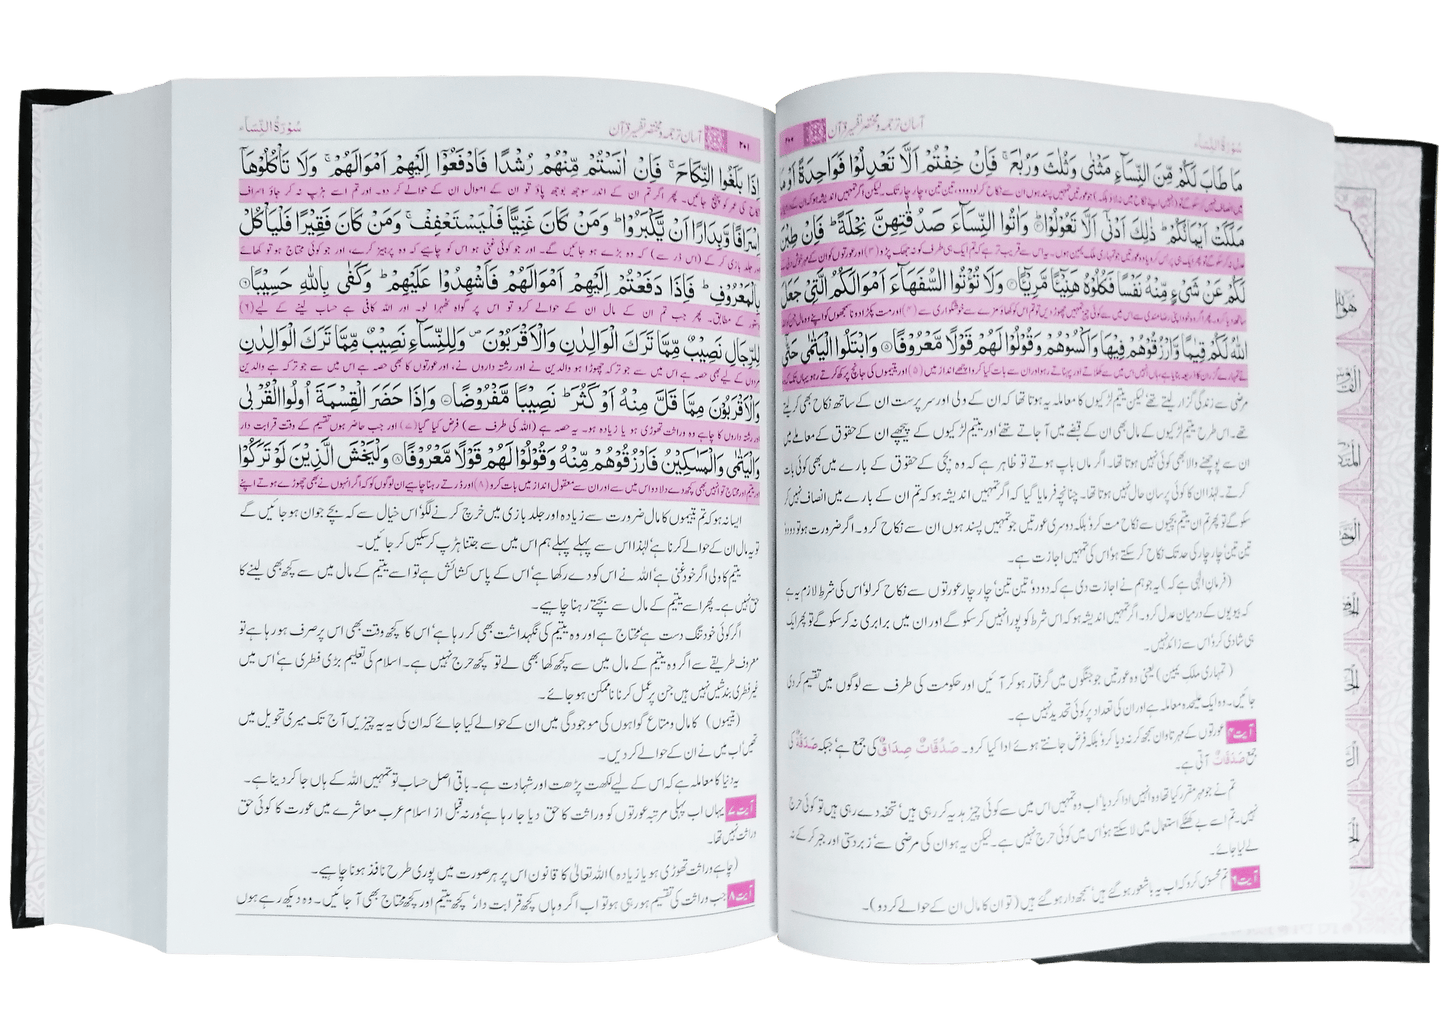 سُوْرَةُ النِّسَاء
آسان ترجمہ و مختصر تفسیر قرآن
۲۰۰
مَا طَابَ لَكُمْ مِّنَ النِّسَآءِ مَثْنٰى وَثُلٰثَ وَرُبٰعَ ۚ فَاِنْ خِفْتُمْ اَلَّا تَعْدِلُوْا فَوَاحِدَةً اَوْ مَا
مَلَكَتْ اَيْمَانُكُمْ ؕ ذٰلِكَ اَدْنٰۤى اَلَّا تَعُوْلُوْا ۝ وَاٰتُوا النِّسَآءَ صَدُقٰتِهِنَّ نِحْلَةً ؕ فَاِنْ طِبْنَ
لَكُمْ عَنْ شَيْءٍ مِّنْهُ نَفْسًا فَكُلُوْهُ هَنِيْٓـًٔا مَّرِيْٓـًٔا ۝ وَلَا تُؤْتُوا السُّفَهَآءَ اَمْوَالَكُمُ الَّتِيْ جَعَلَ
اللّٰهُ لَكُمْ قِيٰمًا وَّارْزُقُوْهُمْ فِيْهَا وَاكْسُوْهُمْ وَقُوْلُوْا لَهُمْ قَوْلًا مَّعْرُوْفًا ۝۵ وَابْتَلُوا الْيَتٰمٰى حَتّٰۤى
مرضی سے زندگی گزار لیتے تھے لیکن یتیم لڑکیوں کا معاملہ یہ ہوتا تھا کہ ان کے ولی اور سرپرست ان کے ساتھ نکاح بھی کر لیتے
تھے۔ اس طرح یتیم لڑکیوں کے مال بھی ان کے قبضے میں آ جاتے تھے' اور یتیم لڑکیوں کے پیچھے ان کے حقوق کے معاملے میں
ان سے پوچھنے والا بھی کوئی نہیں ہوتا تھا۔ اگر ماں باپ ہوتے تو ظاہر ہے کہ وہ بچی کے حقوق کے بارے میں بھی کوئی بات
کرتے۔ لہٰذا ان کا کوئی پرسانِ حال نہیں ہوتا تھا۔ چنانچہ فرمایا گیا کہ اگر تمہیں اندیشہ ہو کہ تم ان کے بارے میں انصاف نہیں کر
سکو گے تو پھر تم ان یتیم بچیوں سے نکاح مت کرو' بلکہ دوسری عورتیں جو تمہیں پسند ہوں ان سے نکاح کرو۔ اگر ضرورت ہو تو دو دو'
تین تین' چار چار کی حد تک نکاح کر سکتے ہو' اس کی تمہیں اجازت ہے۔
(فرمانِ الٰہی ہے کہ) یہ جو ہم نے اجازت دی ہے کہ دو دو' تین تین' چار چار عورتوں سے نکاح کر لو' اس کی شرط لازم یہ ہے
کہ بیویوں کے درمیان عدل کرو۔ اگر تمہیں اندیشہ ہو کہ اس شرط کو پورا نہیں کر سکو گے اور ان میں برابری نہ کر سکو گے تو پھر ایک
ہی شادی کرو' اس سے زائد نہیں۔
(تمہاری ملک یمین) یعنی وہ عورتیں جو جنگوں میں گرفتار ہو کر آئیں اور حکومت کی طرف سے لوگوں میں تقسیم کر دی
جائیں۔ وہ ایک علیحدہ معاملہ ہے اور ان کی تعداد پر کوئی تحدید نہیں ہے۔
آیت ۴ عورتوں کے مہر تاوان سمجھ کر نہ دیا کرو' بلکہ فرض جانتے ہوئے ادا کیا کرو۔ صَدُقَات' صِدَاق کی جمع ہے' جبکہ صَدَقَة کی
جمع صَدَقَات آتی ہے۔
تم نے جو مہر مقرر کیا تھا وہ انہیں ادا کر دیا' اب وہ تمہیں اس میں سے کوئی چیز ہدیہ کر رہی ہیں' تحفہ دے رہی ہیں تو کوئی حرج
نہیں۔ تم اسے بے کھٹکے استعمال میں لا سکتے ہو' اس میں کوئی حرج نہیں ہے۔ لیکن یہ ہو ان کی مرضی سے' زبردستی اور جبر کر کے نہ
لے لیا جائے۔
آیت ۶ تم محسوس کرو کہ اب یہ باشعور ہو گئے ہیں' سمجھ دار ہو گئے ہیں (تو ان کا مال ان کے حوالے کر دو)۔
۲۰۱
آسان ترجمہ و مختصر تفسیر قرآن
سُوْرَةُ النِّسَاء
اِذَا بَلَغُوا النِّكَاحَ ۚ فَاِنْ اٰنَسْتُمْ مِّنْهُمْ رُشْدًا فَادْفَعُوْۤا اِلَيْهِمْ اَمْوَالَهُمْ ۚ وَلَا تَاْكُلُوْهَاۤ
نکاح کی عمر کو پہنچ جائیں۔ پھر اگر تم ان کے اندر سوجھ بوجھ پاؤ تو ان کے اموال ان کے حوالے کر دو۔ اور تم اسے ہڑپ نہ کر جاؤ اسراف
اِسْرَافًا وَّبِدَارًا اَنْ يَّكْبَرُوْا ؕ وَمَنْ كَانَ غَنِيًّا فَلْيَسْتَعْفِفْ ۚ وَمَنْ كَانَ فَقِيْرًا فَلْيَاْكُلْ
اور جلد بازی کر کے (اس ڈر سے) کہ وہ بڑے ہو جائیں گے۔ اور جو کوئی غنی ہو اس کو چاہیے کہ وہ پرہیز کرے، اور جو کوئی محتاج ہو تو کھائے
بِالْمَعْرُوْفِ ؕ فَاِذَا دَفَعْتُمْ اِلَيْهِمْ اَمْوَالَهُمْ فَاَشْهِدُوْا عَلَيْهِمْ ؕ وَكَفٰى بِاللّٰهِ حَسِيْبًا ۝۶
دستور کے مطابق۔ پھر جب تم ان کے مال ان کے حوالے کرو تو اس پر گواہ ٹھہرا لو۔ اور اللہ کافی ہے حساب لینے کے لیے (۶)
لِلرِّجَالِ نَصِيْبٌ مِّمَّا تَرَكَ الْوَالِدٰنِ وَالْاَقْرَبُوْنَ ۪ وَلِلنِّسَآءِ نَصِيْبٌ مِّمَّا تَرَكَ الْوَالِدٰنِ
مردوں کے لیے بھی حصہ ہے اس میں سے جو ترکہ چھوڑا ہو والدین نے اور رشتہ داروں نے، اور عورتوں کا بھی حصہ ہے اس میں سے جو ترکہ ہے والدین
وَالْاَقْرَبُوْنَ مِمَّا قَلَّ مِنْهُ اَوْ كَثُرَ ؕ نَصِيْبًا مَّفْرُوْضًا ۝ وَاِذَا حَضَرَ الْقِسْمَةَ اُولُوا الْقُرْبٰى
اور رشتہ داروں کا چاہے وہ وراثت تھوڑی ہو یا زیادہ ہو۔ یہ حصہ ہے (اللہ کی طرف سے) فرض کیا گیا (۷) اور جب حاضر ہوں تقسیم کے وقت قرابت دار
وَالْيَتٰمٰى وَالْمَسٰكِيْنُ فَارْزُقُوْهُمْ مِّنْهُ وَقُوْلُوْا لَهُمْ قَوْلًا مَّعْرُوْفًا ۝۸ وَلْيَخْشَ الَّذِيْنَ لَوْ تَرَكُوْا
اور یتیم اور محتاج تو انہیں بھی کچھ دے دلا دو اس میں سے اور ان سے معقول انداز میں بات کرو (۸) اور ڈرتے رہنا چاہیے ان لوگوں کو کہ اگر انہوں نے بھی چھوڑے ہوتے اپنے
ایسا نہ ہو کہ تم یتیموں کا مال ضرورت سے زیادہ اور جلد بازی میں خرچ کرنے لگو' اس خیال سے کہ بچے جوان ہو جائیں گے
تو یہ مال ان کے حوالے کرنا ہے' لہٰذا اس سے پہلے پہلے ہم اس میں سے جتنا ہڑپ کر سکیں کر جائیں۔
یتیم کا ولی اگر خود غنی ہے' اللہ نے اس کو دے رکھا ہے' اس کے پاس کشائش ہے تو اسے یتیم کے مال میں سے کچھ بھی لینے کا
حق نہیں ہے۔ پھر اسے یتیم کے مال سے بچتے رہنا چاہیے۔
اگر کوئی خود تنگ دست ہے' محتاج ہے اور وہ یتیم کی نگہداشت بھی کر رہا ہے' اس کا کچھ وقت بھی اس پر صرف ہو رہا ہے تو
معروف طریقے سے اگر وہ یتیم کے مال میں سے کچھ کھا بھی لے تو کچھ حرج نہیں ہے۔ اسلام کی تعلیم بڑی فطری ہے' اس میں
غیر فطری بندشیں نہیں ہیں جن پر عمل کرنا ناممکن ہو جائے۔
(یتیموں) کا مال و متاع گواہوں کی موجودگی میں ان کے حوالے کیا جائے کہ ان کی یہ یہ چیزیں آج تک میری تحویل میں
تھیں' اب میں نے ان کے حوالے کر دیں۔
یہ دنیا کا معاملہ ہے کہ اس کے لیے لکھت پڑھت اور شہادت ہے۔ باقی اصل حساب تو تمہیں اللہ کے ہاں جا کر دینا ہے۔
آیت ۷ یہاں اب پہلی مرتبہ عورتوں کو وراثت کا حق دیا جا رہا ہے' ورنہ قبل از اسلام عرب معاشرے میں عورت کا کوئی حق
وراثت نہیں تھا۔
(چاہے وراثت تھوڑی ہو یا زیادہ) اللہ تعالیٰ کا قانون اس پر ہر صورت میں پوری طرح نافذ ہونا چاہیے۔
آیت ۸ جب وراثت کی تقسیم ہو رہی ہو تو اب اگر وہاں کچھ قرابت دار' کچھ یتیم اور کچھ محتاج بھی آ جائیں۔ وہ دیکھ رہے ہوں